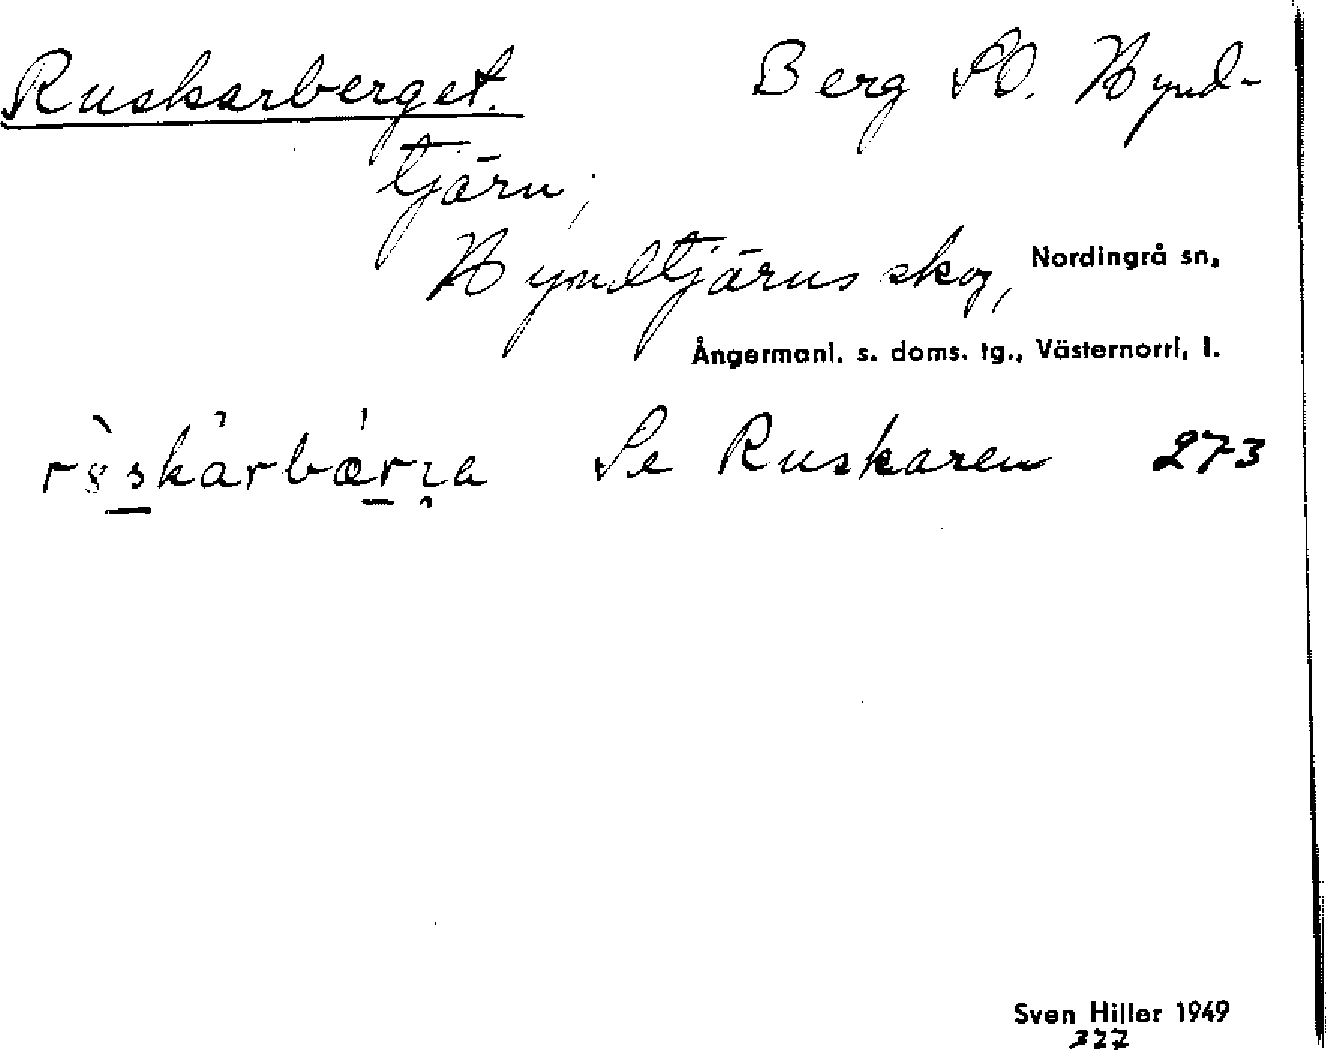 Ruskarberget. Berg SO. Hynd-
tjärn,
Hyndtjärns skog, Nordingrå sn,
Ångermanl. s. doms. tg., Västernorrl. l.
Se Ruskaren 273
Sven Hiller 1949
327